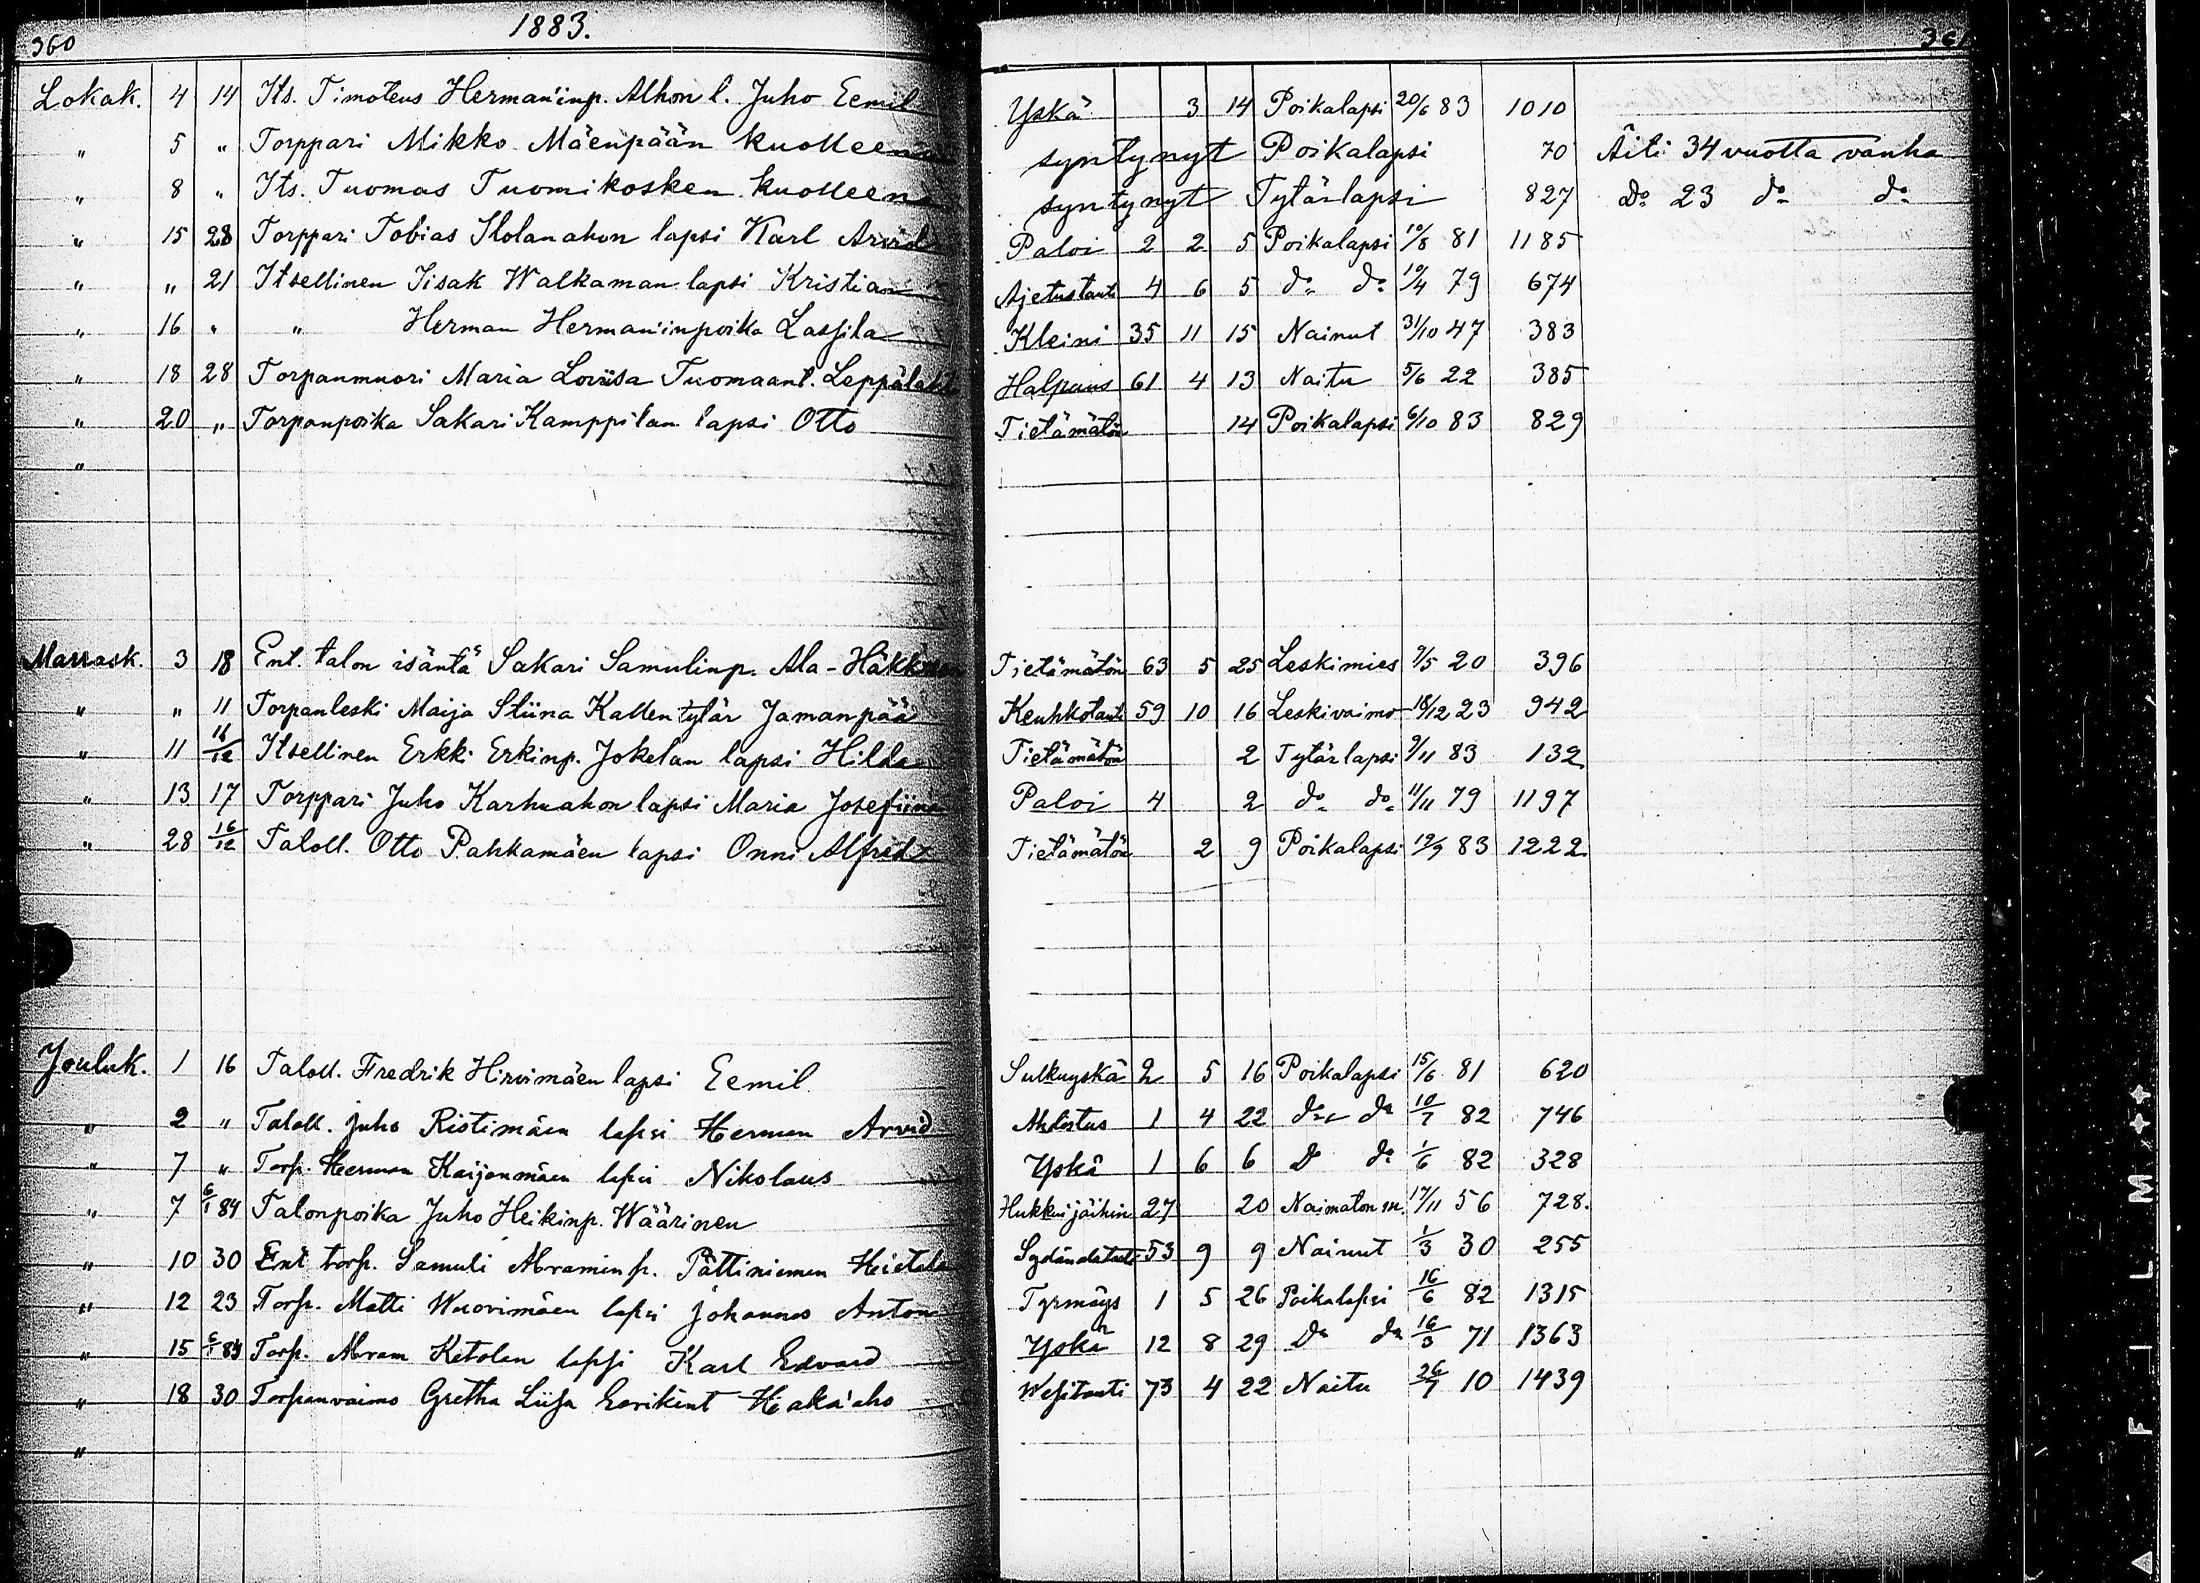 360 1883. 361
Lokak. 4 14 Its. Timoteus Herman'inp. Alhon l. Juho Eemil Yskä 3 14 Poikalapsi 20/6 83 1010
" 5 " Torppari Mikko Mäenpään kuolleena syntynyt Poikalapsi 70 Äiti 34 vuotta vanha
" 8 " Its. Tuomas Tuomikosken kuolleena syntynyt Tytärlapsi 827 Do 23 do do
" 15 28 Torppari Tobias Ilolanahon lapsi Karl Arvid Paloi 2 2 5 Poikalapsi 10/8 81 1185
" " 21 Itsellinen Iisak Walkaman lapsi Kristian Ajetustauti 4 6 5 do do 10/4 79 674
" 16 " " Herman Herman'inpoika Lassila Kleini 35 11 15 Nainut 31/10 47 383
" 18 28 Torpanmuori Maria Loviisa Tuomaant. Leppälaht Halpaus 61 4 13 Naitu 5/6 22 385
" 20 " Torpanpoika Sakari Kamppilan lapsi Otto Tietämätön 14 Poikalapsi 6/10 83 829
"
Marrask. 3 18 Ent. talon isäntä Sakari Samulinp. Ala-Häkkinen Tietämätön 63 5 25 Leskimies 9/5 20 396
" " 11 Torpanleski Maija Stiina Kallentytär Jamanpää Keuhkotauti 59 10 16 Leskivaimo 18/12 23 942
" 11 16/12 Itsellinen Erkki Erkinp. Jokelan lapsi Hilda Tietämätön 2 Tytärlapsi 9/11 83 132
" 13 17 Torppari Juho Karhuahon lapsi Maria Josefiina Paloi 4 2 do do 11/11 79 1197
" 28 16/12 Taloll. Otto Pahkamäen lapsi Onni Alfrid Tietämätön 2 9 Poikalapsi 19/9 83 1222
Jouluk. 1 16 Taloll. Fredrik Hirvimäen lapsi Eemil Sulkuyskä 2 5 16 Poikalapsi 15/6 81 620
" 2 " Taloll. Juho Ristimäen lapsi Herman Arvid Ahdistus 1 4 22 do do 10/7 82 746
" 7 " Torp. Herman Kaijonmäen lapsi Nikolaus Yskä 1 6 6 Do do 1/6 82 328
" 7 6/1 84 Talonpoika Juho Heikinp. Wäärinen Hukkui jäihin 27 20 Naimaton m. 17/11 56 728.
" 10 30 Ent torp. Samuli Abraminp. Pättiniemen Hietala Sydändetauti 53 9 9 Nainut 1/3 30 255
" 12 23 Torp. Matti Wuorimäen lapsi Johannes Anton Tyrmäys 1 5 26 Poikalapsi 16/6 82 1315
" 15 6/1 84 Torp. Abram Ketolan lapsi Karl Edvard Yskä 12 8 29 Do do 16/3 71 1363
" 18 30 Torpanvaimo Gretha Liisa Eerikint Haka'aho Wesitauti 73 4 22 Naitu 26/7 10 1439
"
FILM